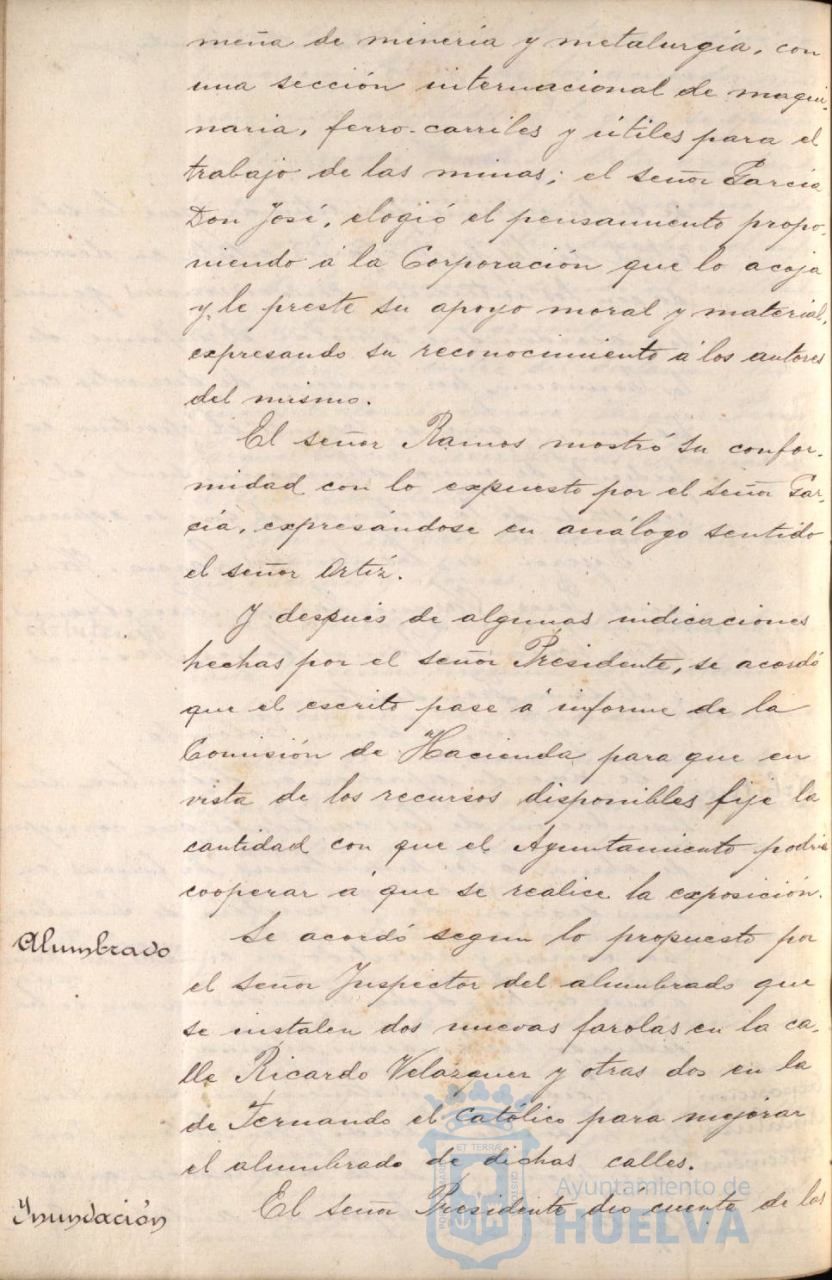 meña de minería y metalurgia, con
una sección internacional de maqui-
naria, ferro-carriles y útiles para el
trabajo de las minas; el señor Garcia
Don José, elogió el pensamiento propo-
niendo á la Corporación que lo acoja
y le preste su apoyo moral y material,
expresando su reconocimiento á los autores
del mismo.
El señor Ramos mostró su confor-
midad con lo expuesto por el señor Gar-
cía, expresándose en análogo sentido
el señor Ortíz.
Y después de algunas indicaciones
hechas por el señor Presidente, se acordó
que el escrito pase á informe de la
Comisión de Hacienda para que en
vista de los recursos disponibles fije la
cantidad con que el Ayuntamiento podria
cooperar á que se realice la exposición.
Alumbrado
Se acordó segun lo propuesto por
el señor Inspector del alumbrado que
se instalen dos nuevas farolas en la ca-
lle Ricardo Velazquez y otras dos en la
de Fernando el Católico para mejorar
el alumbrado de dichas calles.
Inundación
El señor Presidente dió cuenta de los
ET TERRÆ
Ayuntamiento de
HUELVA